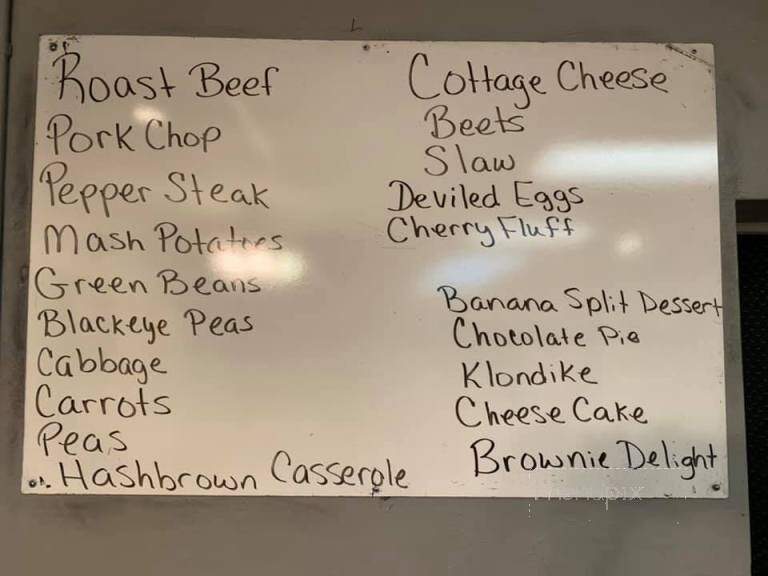 Roast Beef
Pork Chop
Pepper Steak
Mash Potatoes
Green Beans
Blackeye Peas
Cabbage
Carrots
Peas
Hashbrown Casserole
Cottage Cheese
Beets
Slaw
Deviled Eggs
Cherry Fluff
Banana Split Dessert
Chocolate Pie
Klondike
Cheese Cake
Brownie Delight